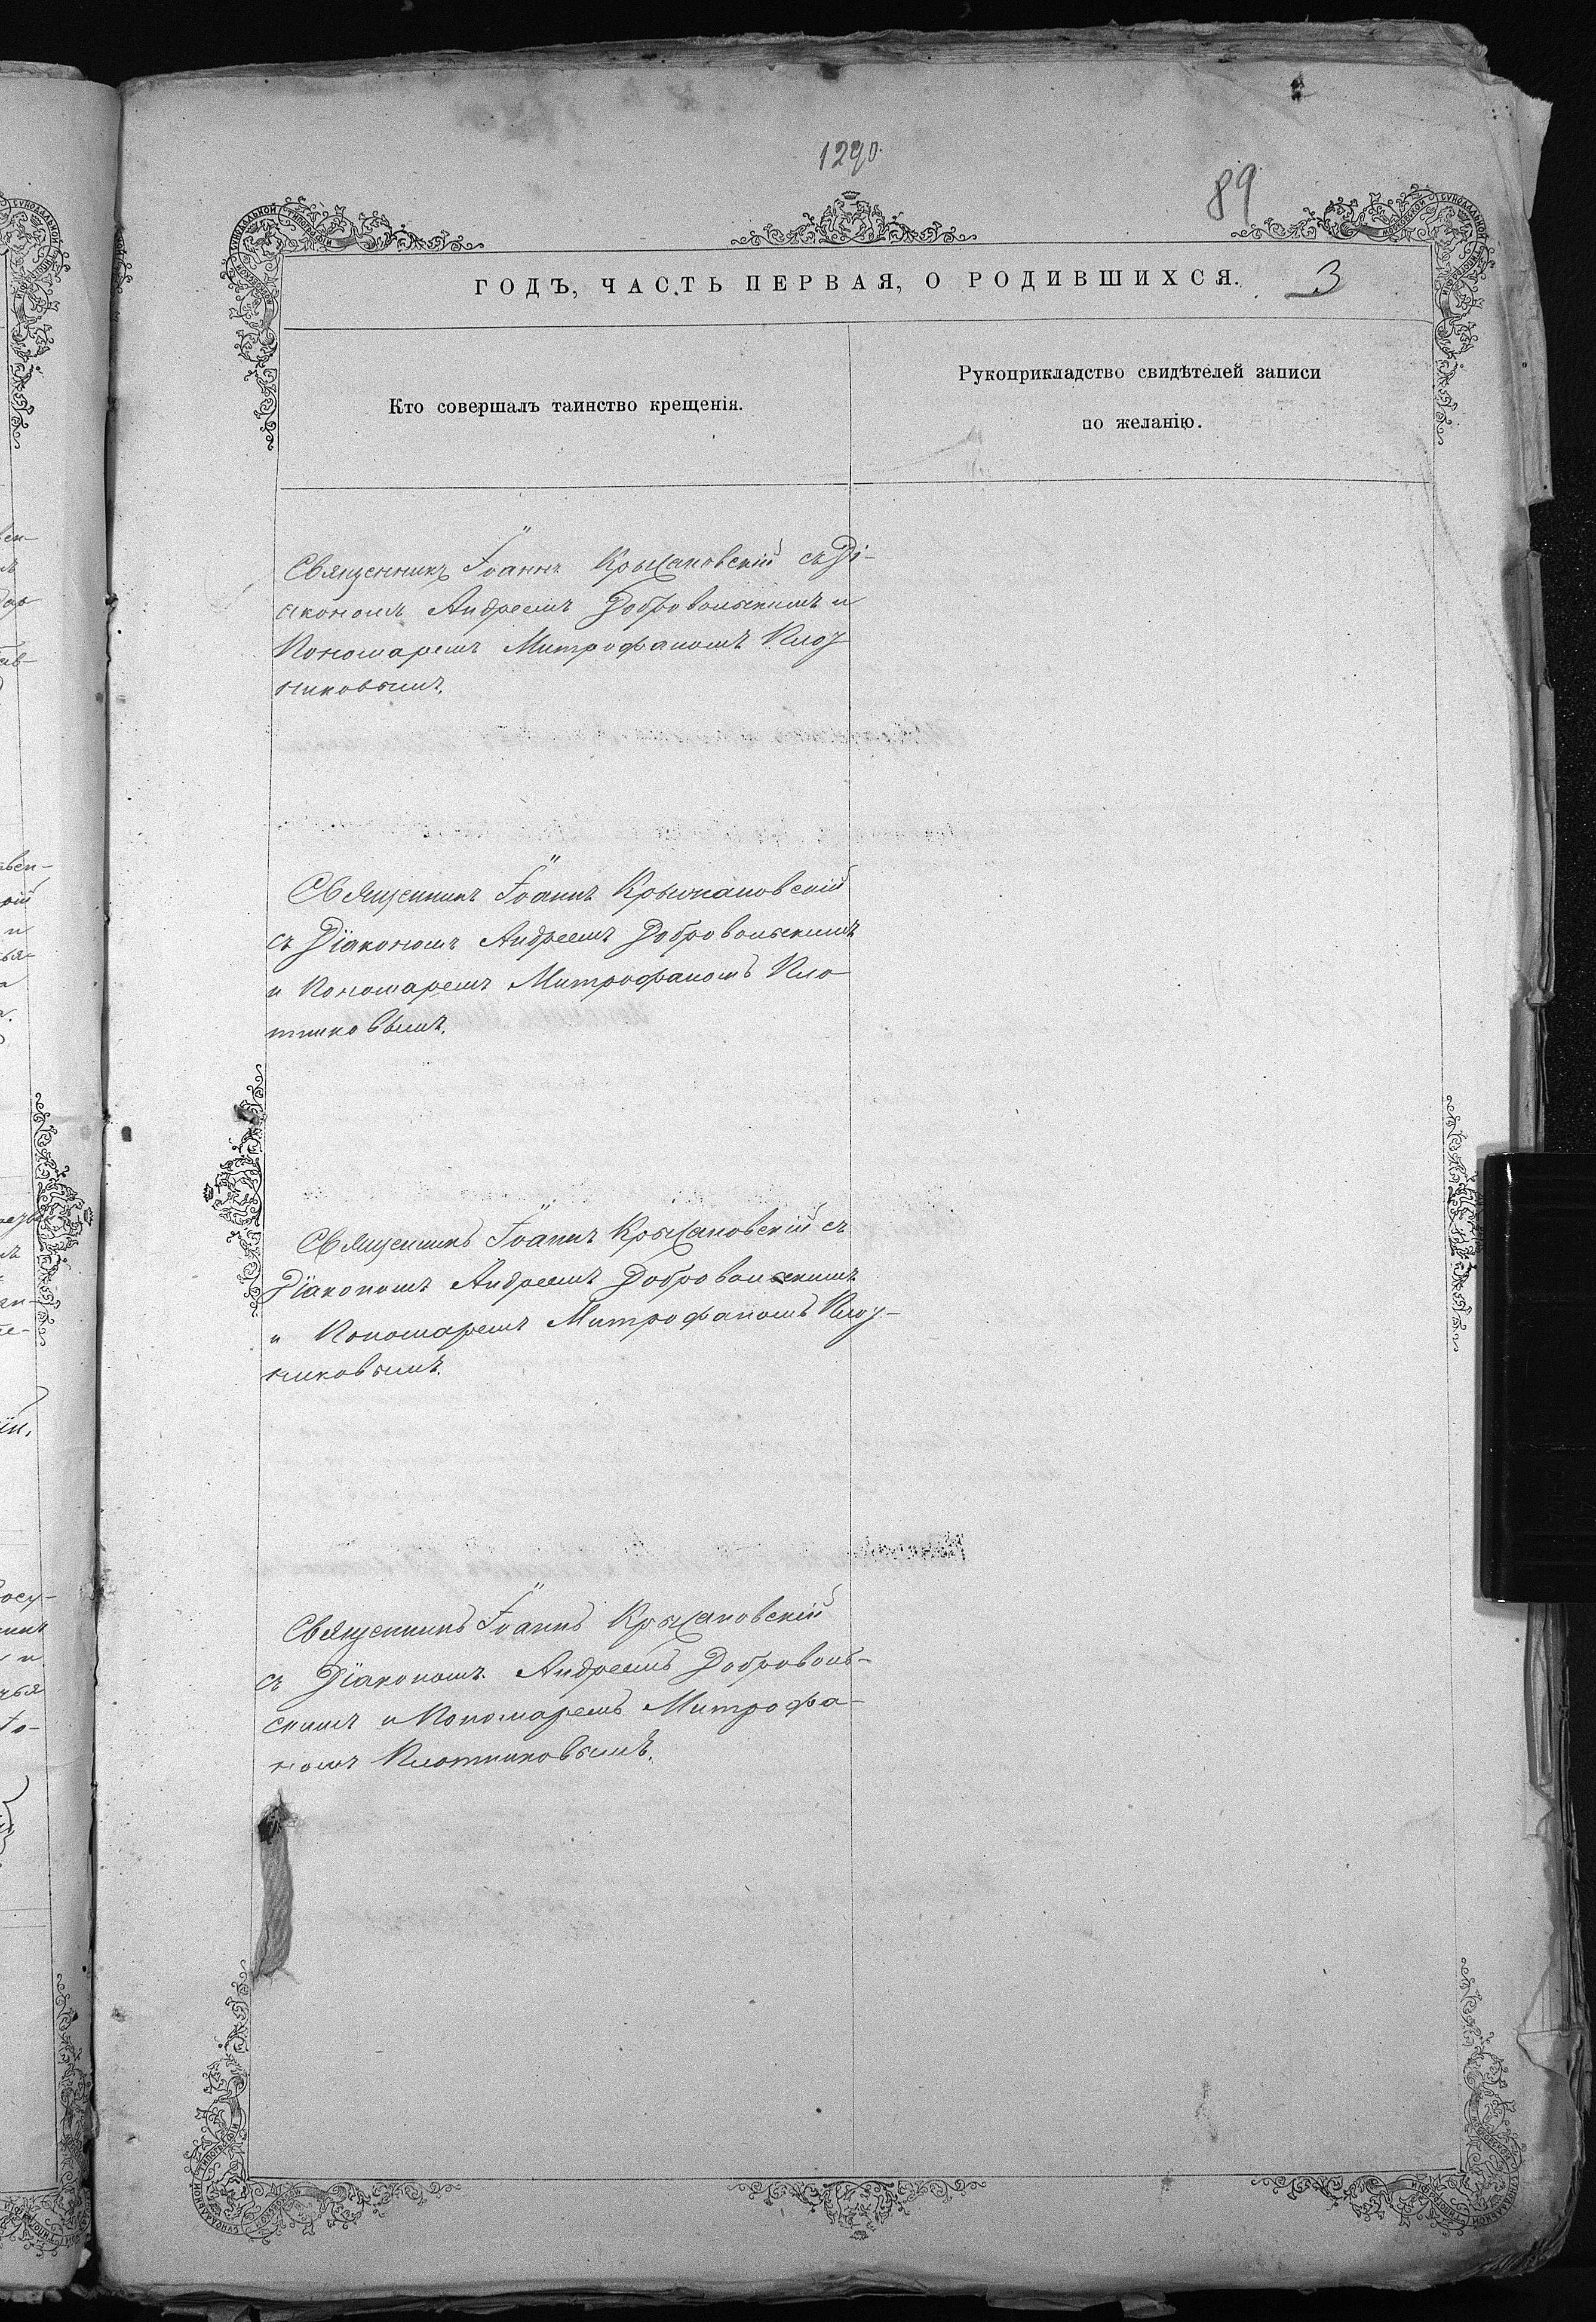 1290
89
ГОДЪ, ЧАСТЬ ПЕРВАЯ, О РОДИВШИХСЯ.
3
Кто совершалъ таинство крещенія.
Рукоприкладство свидѣтелей записи
по желанію.
Священникъ Іоаннъ Крыжановскій съ Ді-
акономъ Андреемъ Добровольскимъ и
Пономаремъ Митрофаномъ Плот
никовымъ.
Священникъ Іоаннъ Крыжановскій
съ Діакономъ Андреемъ Добровольскимъ
и Пономаремъ Митрофаномъ Пло
тниковымъ.
Священникъ Іоаннъ Крыжановскій съ
Діакономъ Андреемъ Добровольскимъ
и Пономаремъ Митрофаномъ Плот-
никовымъ.
Священникъ Іоаннъ Крыжановскій
съ Діакономъ Андреемъ Доброволь-
скимъ и Пономаремъ Митрофа-
номъ Плотниковымъ.